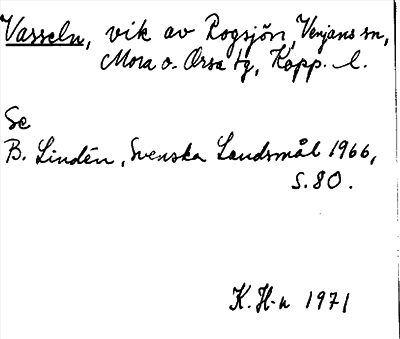 Vasseln, vik av Rogsjön, Venjans sn,
Mora o. Orsa tg, Kopp. l.
Se
B. Lindén, Svenska Landsmål 1966,
s. 80.
K. H-n 1971